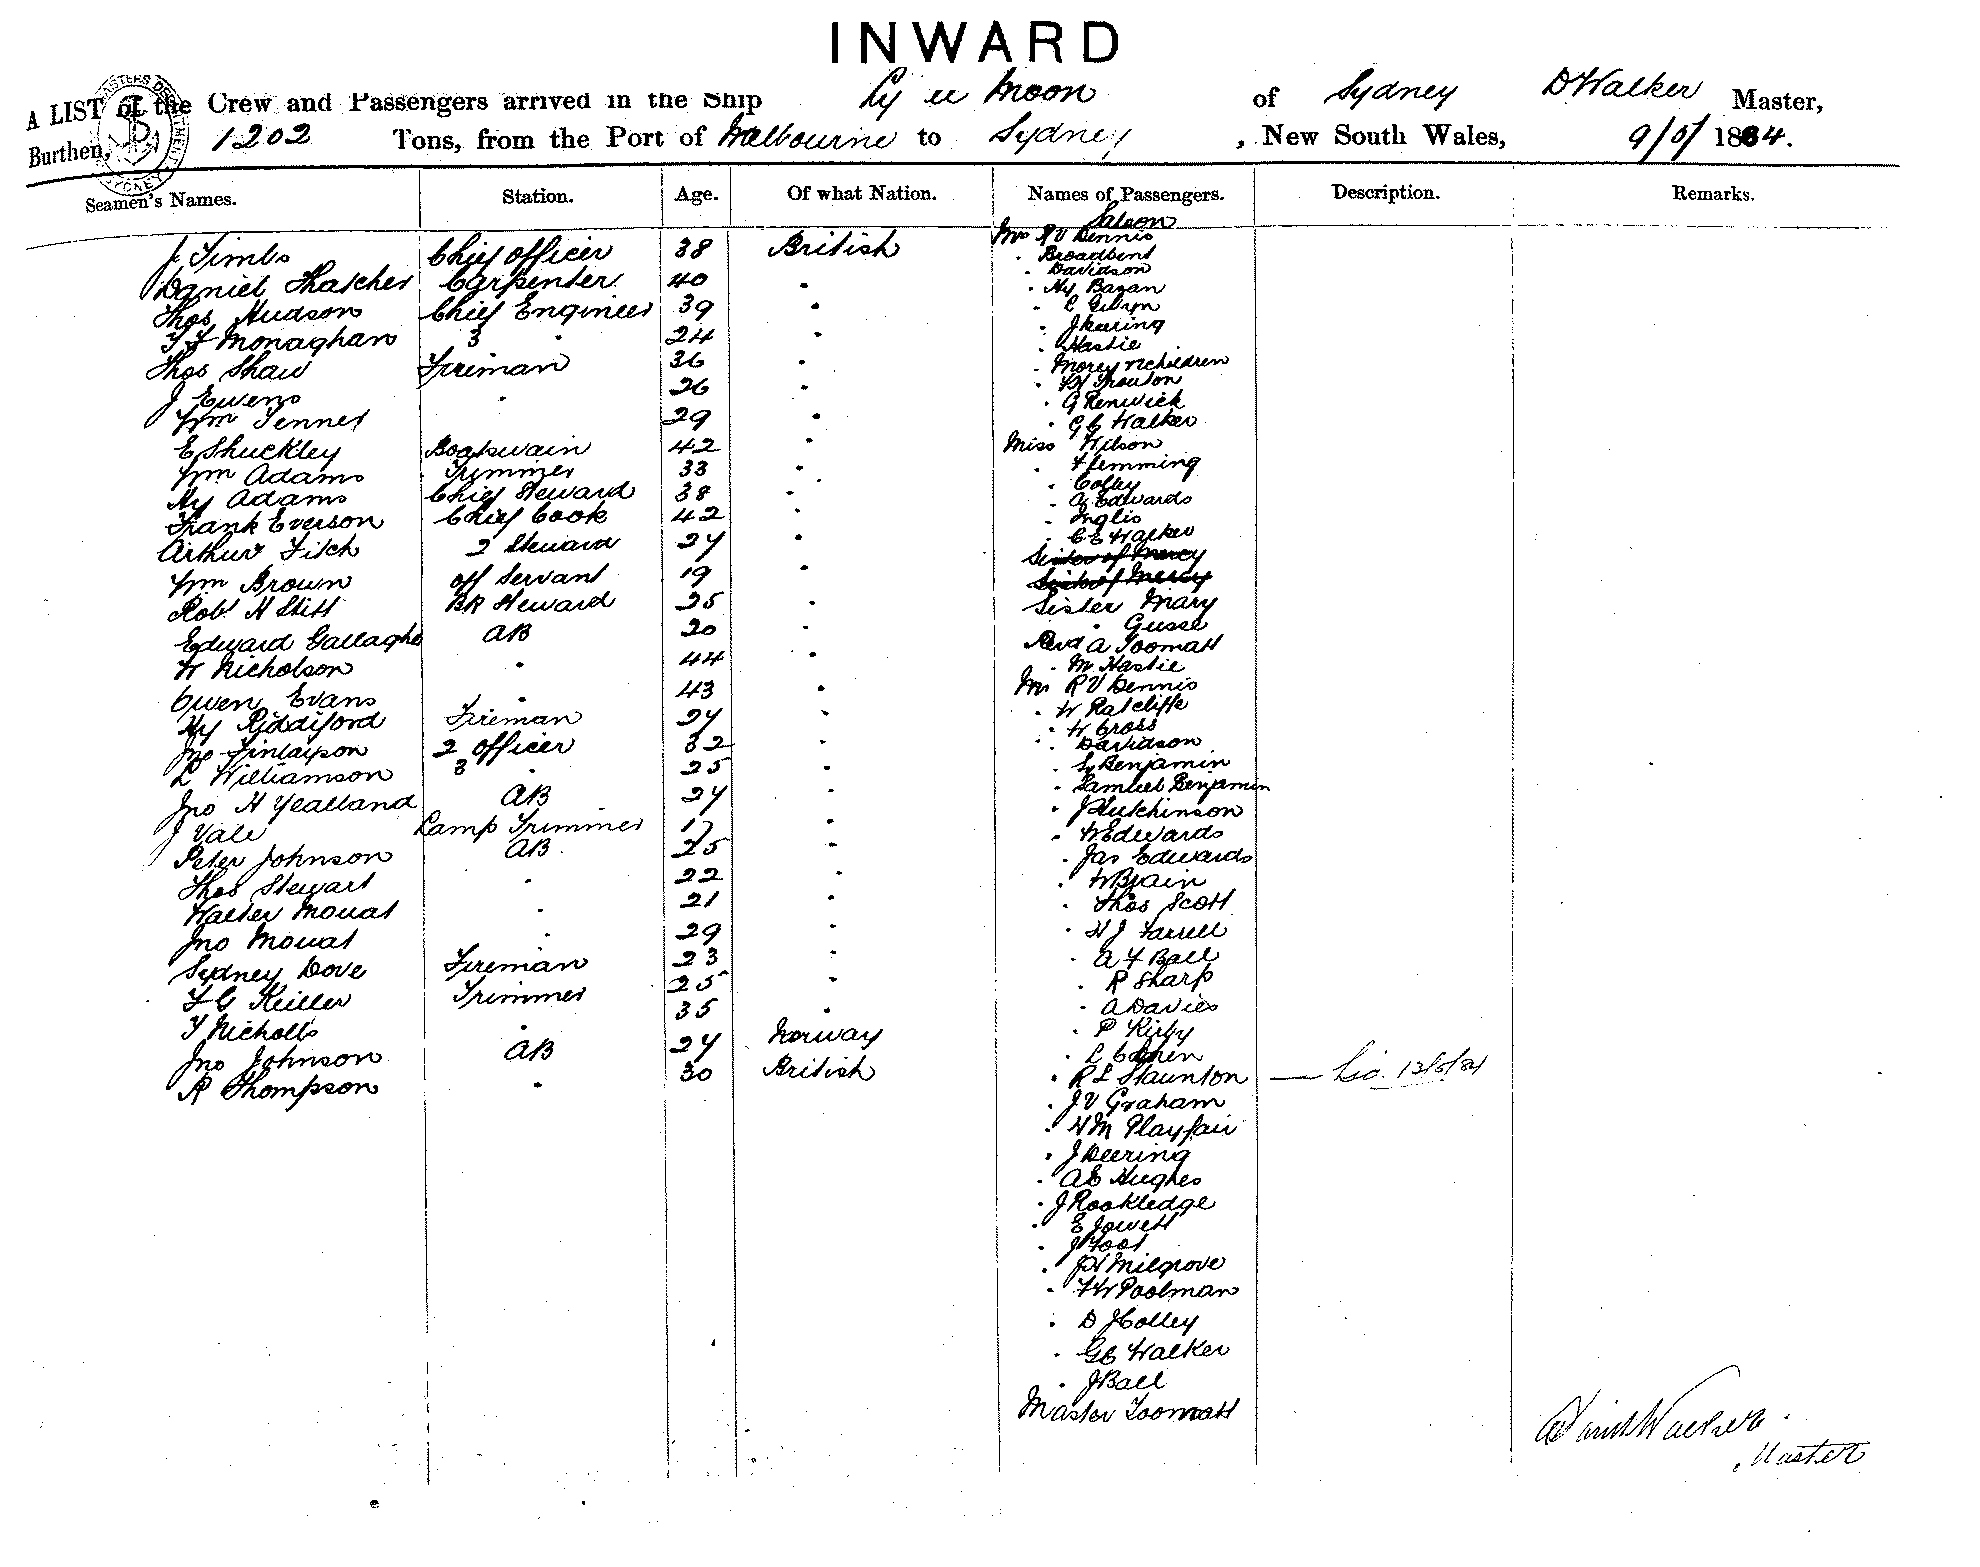 INWARD
A LIST of the Crew and Passengers arrived in the Ship Ly ee Moon of Sydney D Walker Master,
Burthen, 1202 Tons, from the Port of Melbourne to Sydney, New South Wales, 9/5/ 1884.
Seamen's Names. Station. Age. Of what Nation. Names of Passengers. Description. Remarks.
Saloon
J Timbs Chief Officer 38 British Mrs R V Dennis
" Broadbent
" Davidson
Daniel Thatcher Carpenter 40 " " Hy Bagan
Thos Hudson Chief Engineer 39 " " C Giblyn
" J Keering
T F Monaghan 3 " 24 " " Hastie
Thos Shaw Fireman 36 " " Morey & children
" Trouton
J Ewens " 26 " " G Renwick
Wm Jenner " 29 " " G C Walker
E Shuckley Boatswain 42 " Miss Wilson
Wm Adams Trimmer 33 " " Flemming
" Colley
Hy Adams Chief Steward 38 " " A Edwards
Frank Everson Chief Cook 42 " " Inglis
" C E Walker
Arthur Fitch 2 Steward 24 " Sister of Mercy
Wm Brown Off Servant 19 " Sister of Mercy
Robt H Stitt BR Steward 25 " Sister Mary
" Gusse
Edward Gallagher AB 20 " Revd A Toomatt
W Nicholson " 44 " " M Hastie
Owen Evans " 43 " Mr R V Dennis
Hy Riddiford Fireman 24 " " W Ratcliffe
" W Cross
Jno Finlayson 2 Officer 32 " " Davidson
L Williamson 3 " 25 " " Benjamin
" Samuel Benjamin
Jno H Yealland AB 24 " " J Hutchinson
J Vale Lamp Trimmer 17 " " W Edwards
Peter Johnson AB 25 " " Jas Edwards
Thos Stewart " 22 " " W Brain
Walter Mouat " 21 " " Thos Scott
Jno Mouat " 29 " " H J Farrell
Sydney Dove Fireman 23 " " A F Ball
" R Sharp
F G Keiller Trimmer 25 " " A Davies
T Nicholls " 35 " " P Kirby
Jno Johnson AB 24 Norway " L Cohen
R Thompson " 30 British " R L Staunton
" J V Graham
" H M Playfair
" J Deering
" A E Hughes
" J Rookledge
" E Jowett
" J Foot
" Milgrove
" F W Poolman
" D J Colley
" G C Walker
" J Ball
Master Toomatt
David Walker
Master